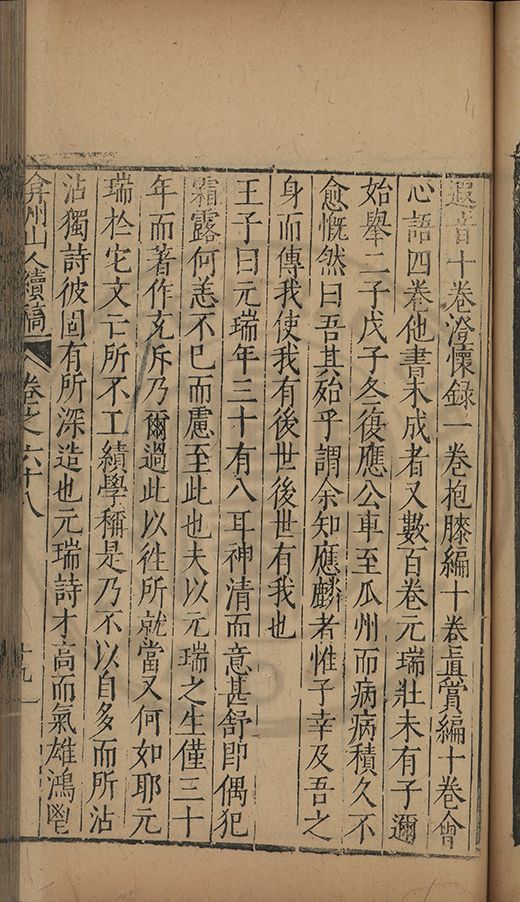 遐音十卷澄懷錄一卷抱膝編十卷眞賞編十卷會
心語四卷他書未成者又數百卷元瑞壯未有子邇
始舉二子戊子冬復應公車至瓜州而病病積久不
愈慨然曰吾其殆乎謂余知應麟者惟子幸及吾之
身而傳我使我有後世後世有我也
王子曰元瑞年三十有八耳神清而意甚舒卽偶犯
霜露何恙不巳而慮至此也夫以元瑞之生僅三十
年而著作充斥乃爾過此以徃所就當又何如耶元
瑞於它文亡所不工績學稱是乃不以自多而所沾
沾獨詩彼固有所深造也元瑞詩才高而氣雄鴻鬯
弇州山人續稿 卷之六十八